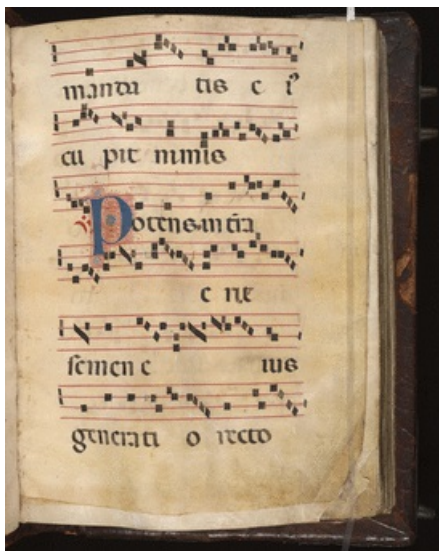 manda tis e iꝰ
cu pit nimis
Potens in t̄ra
e rit
semen e ius
generati o recto